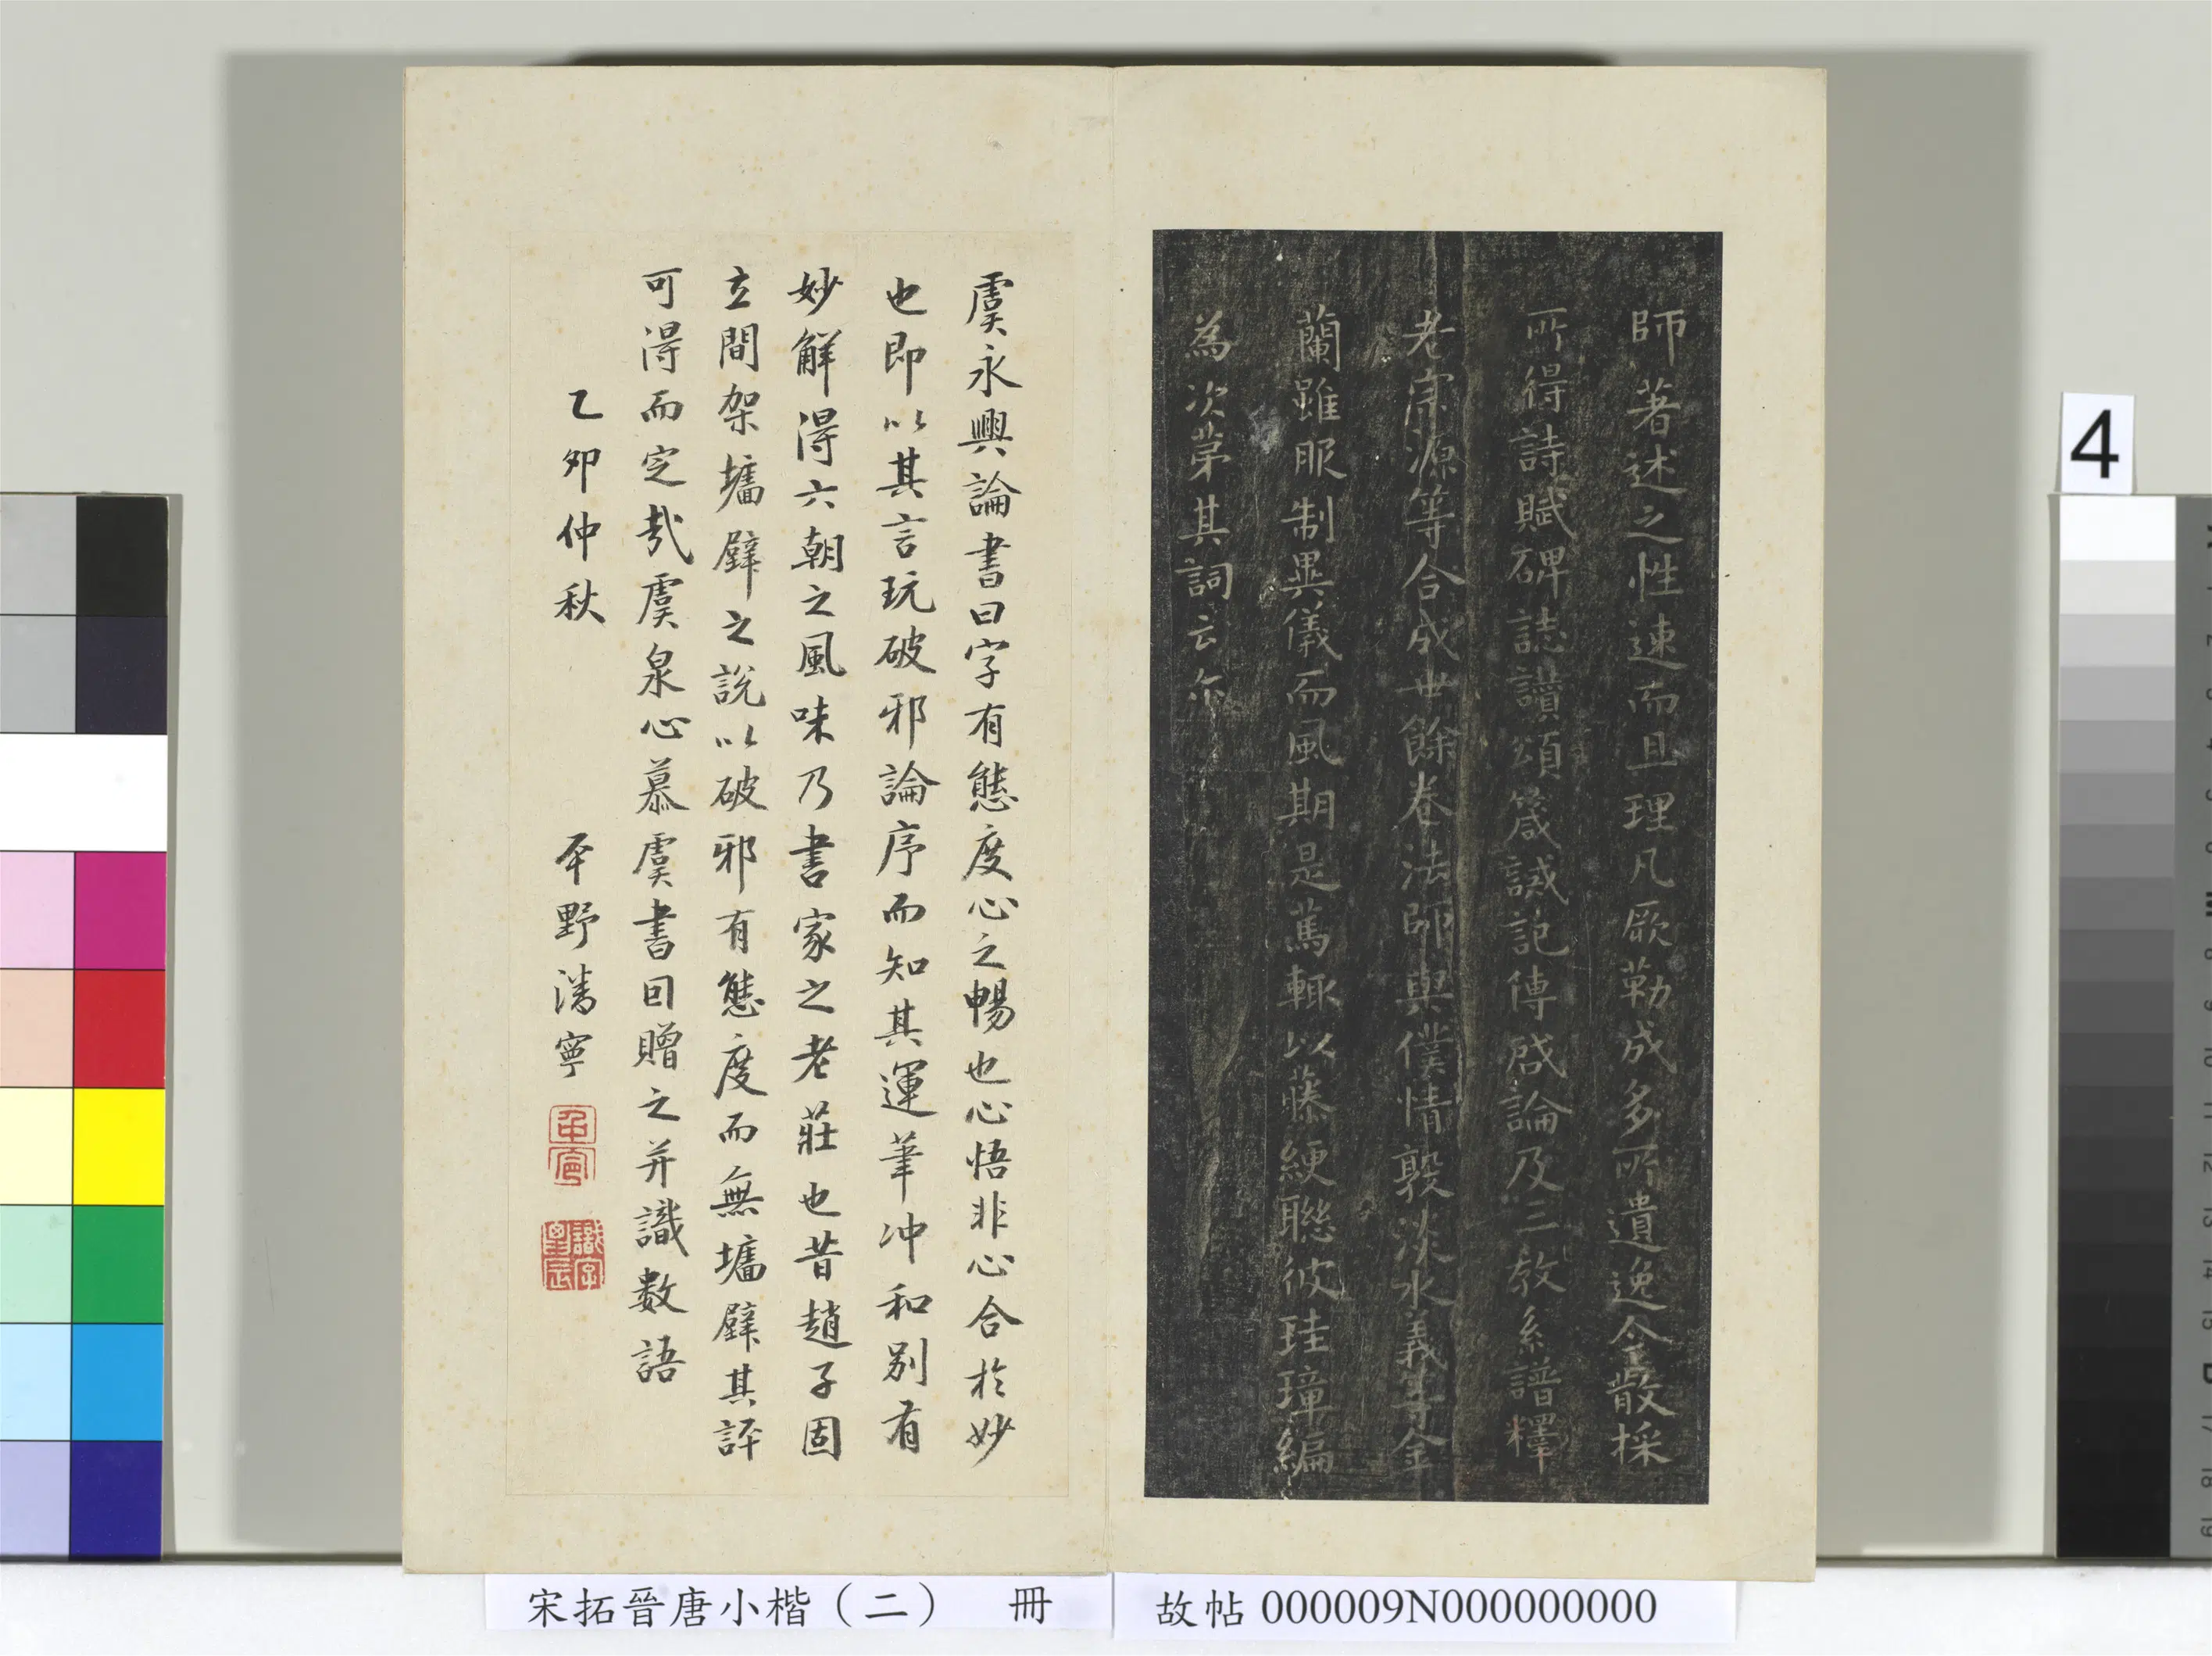 師著述之性速而且理凡厥勒成多所遺逸今散採
所得詩賦碑誌讚頌箴誡記傳啟論及三教系譜釋
老宗源等合成卅餘卷法師與僕情敦淡水義等金
蘭雖服制異儀而風期是篤輒以藤綆聯彼珪璋編
為次第其詞云尒
虞永興論書曰字有態度心之暢也心悟非心合於妙
也即以其言玩破邪論序而知其運筆冲和别有
妙解得六朝之風味乃書家之老莊也昔趙子固
立間架墻壁之說以破邪有態度而無墻壁其評
可得而定哉虞泉心慕虞書因贈之并識數語
乙夘仲秋
平野潘寧
4
宋拓晉唐小楷（二） 冊
故帖 000009N000000000